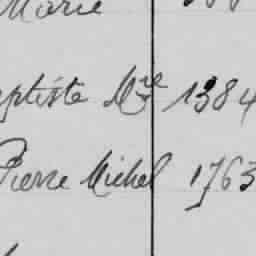 Marie
aptiste Mre 1384
Pierre Michel 1763